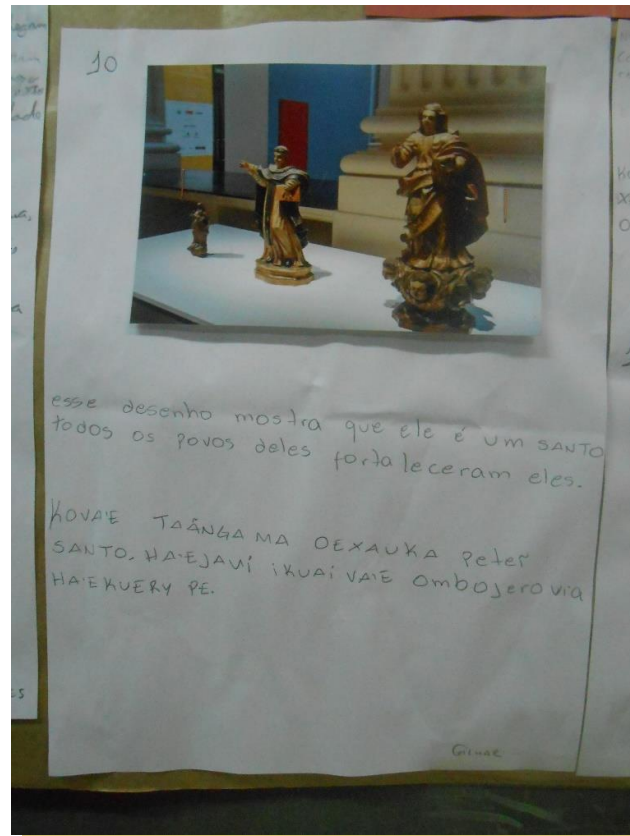 10
esse desenho mostra que ele é um SANTO
todos os povos deles fortaleceram eles.
KOVA'E TAÂNGA MA OEXAUKA Peteĩ
SANTO. HA'EJAVÍ iKUAI VA'E OmboJeroviA
HA'EKUERY PE.
Gilmar